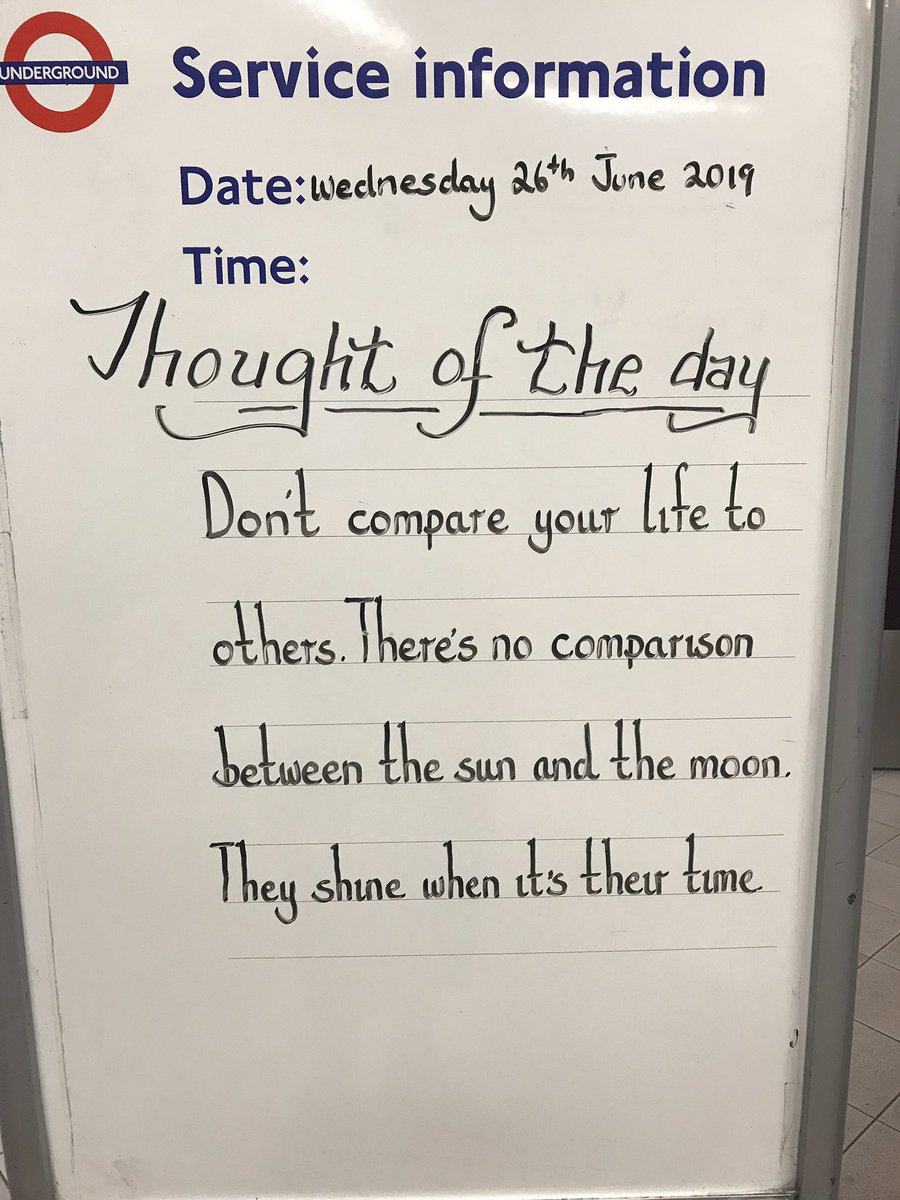 UNDERGROUND
Service information
Date: Wednesday 26th June 2019
Time:
Thought of the day
Don't compare your life to
others. There's no comparison
between the sun and the moon.
They shine when it's their time.